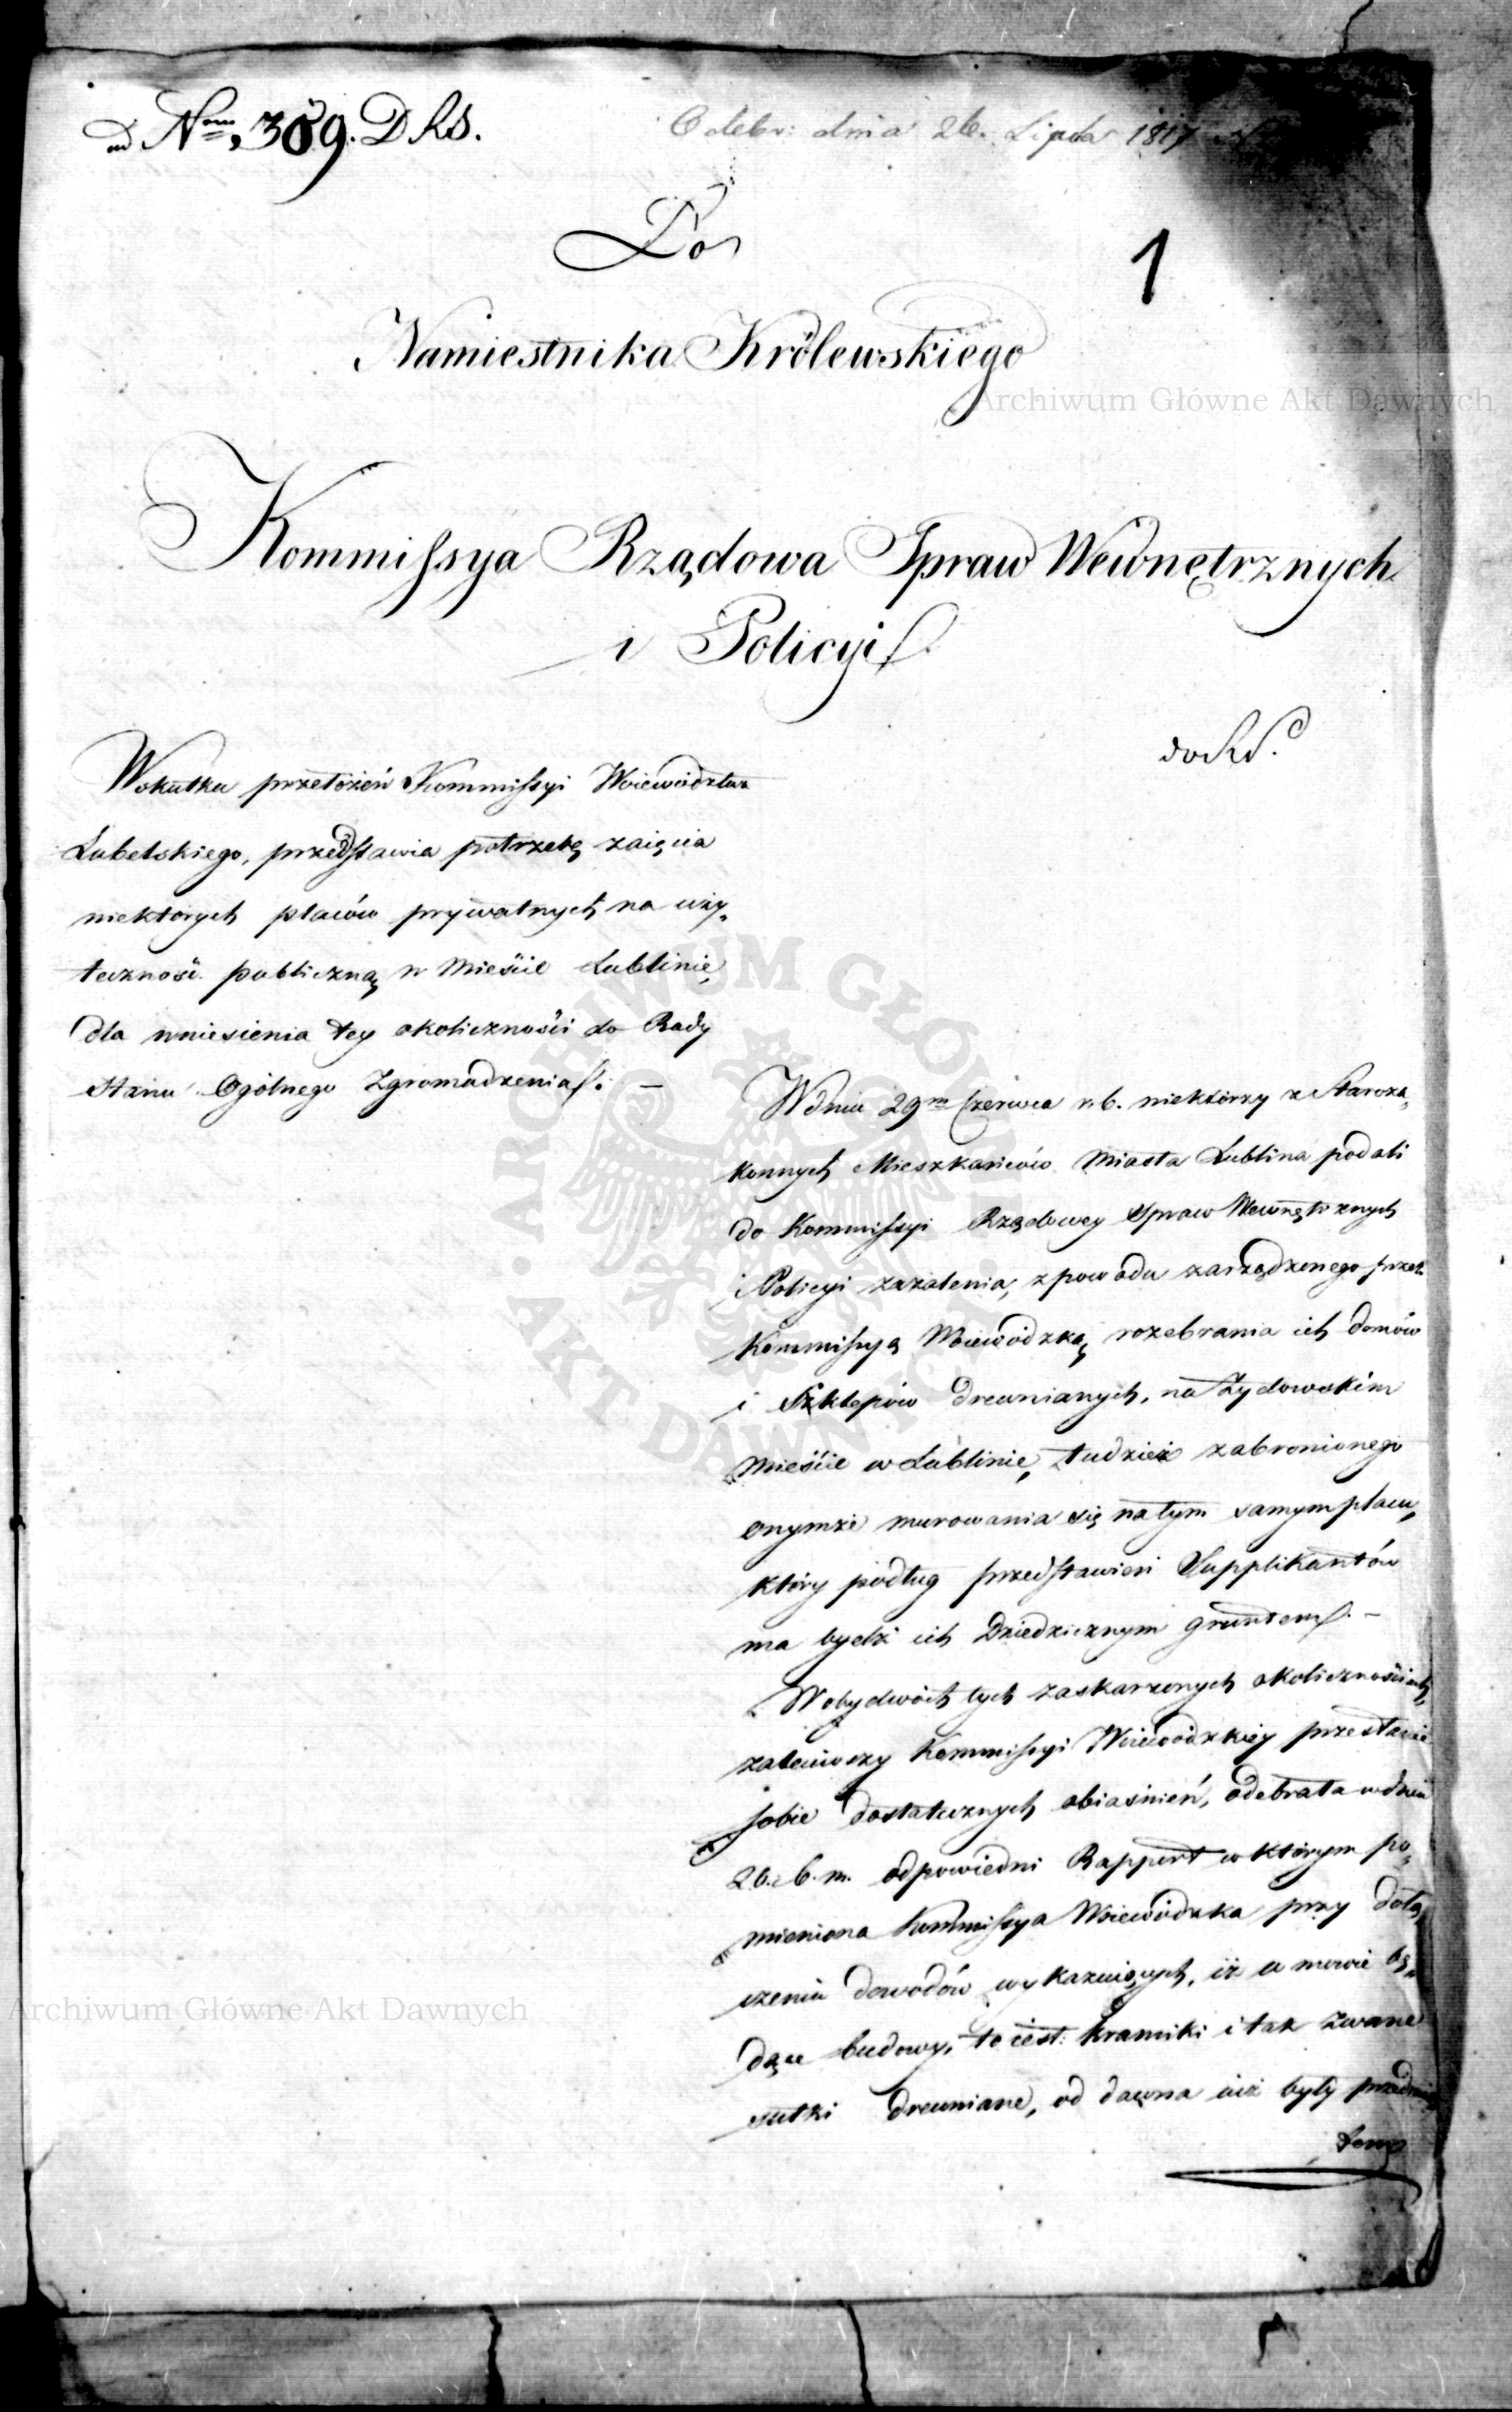 ad N<sup>rum</sup> 389. D RS.
Odebr: dnia 26. Lipca 1817
Do
1
Namiestnika Królewskiego
Kommissya Rządowa Spraw Wewnętrznych
i Policyi.
Wskutku przełożeń Kommissyi Woiewództwa
Lubelskiego, przedstawia potrzebę zaięcia
niektórych placów prywatnych na uży„
teczność publiczną w Mieście Lublinie,
dla wniesienia tey okoliczności do Rady
Stanu Ogólnego Zgromadzenia. —
W dniu 29<sup>m</sup> Czerwca r. b. niektórzy z Staroza„
konnych Mieszkańców Miasta Lublina podali
do Kommissyi Rządowey Spraw Wewnętrznych
i Policyi zażalenia, z powodu zarządzonego przez
Kommissyą Woiewódzką rozebrania ich domów
i Szklepów drewnianych, na Żydowskim
Mieście w Lublinie, tudzież zabronionego
onymże murowania się na tym samym placu,
który podług przedstawień Supplikantów
ma bydź ich Dziedzicznym gruntem. —
W obydwóch tych zaskarzonych okolicznościach,
zaleciwszy Kommissyi Woiewódzkiey przesłanie
sobie dostatecznych obiaśnień, odebrała w dniu
26. b. m. odpowiedni Rapport w którym po„
mieniona Kommissya Woiewódzka przy dołą„
czeniu dowodów wykazuiących, iż w mowie bę„
dące budowy, to iest: kramiki i tak zwane
sutki drewniane, od dawna iuż były przedmio„
tem
Archiwum Główne Akt Dawnych
ARCHIWUM GŁÓWNE AKT DAWNYCH
Archiwum Główne Akt Dawnych